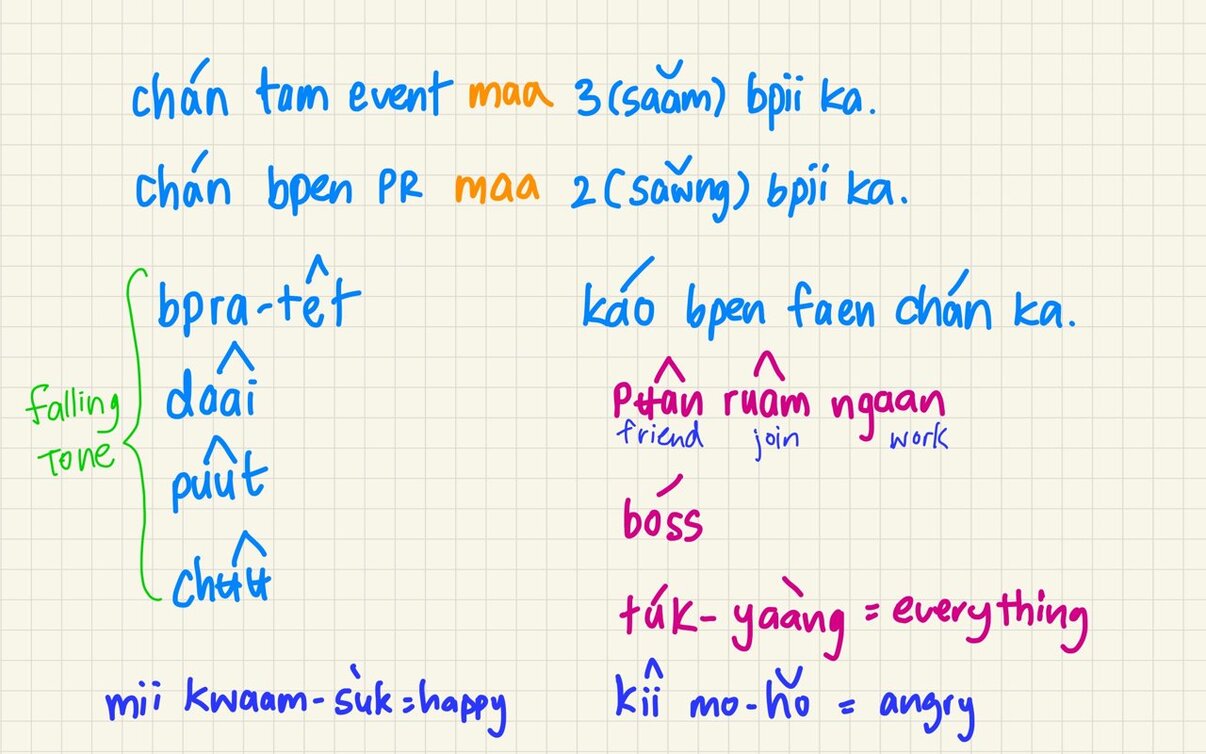 chán tam event maa 3 (saăm) bpii ka.
chán bpen PR maa 2 (saw̌ng) bpii ka.
falling
tone
bpra-têt
daâi
puût
chʉʉ̂
káo bpen faen chán ka.
Pʉ̂an ruâm ngaan
friend join work
bóss
túk-yaàng = everything
mii kwaam-sùk = happy
kiî mo-hŏ = angry